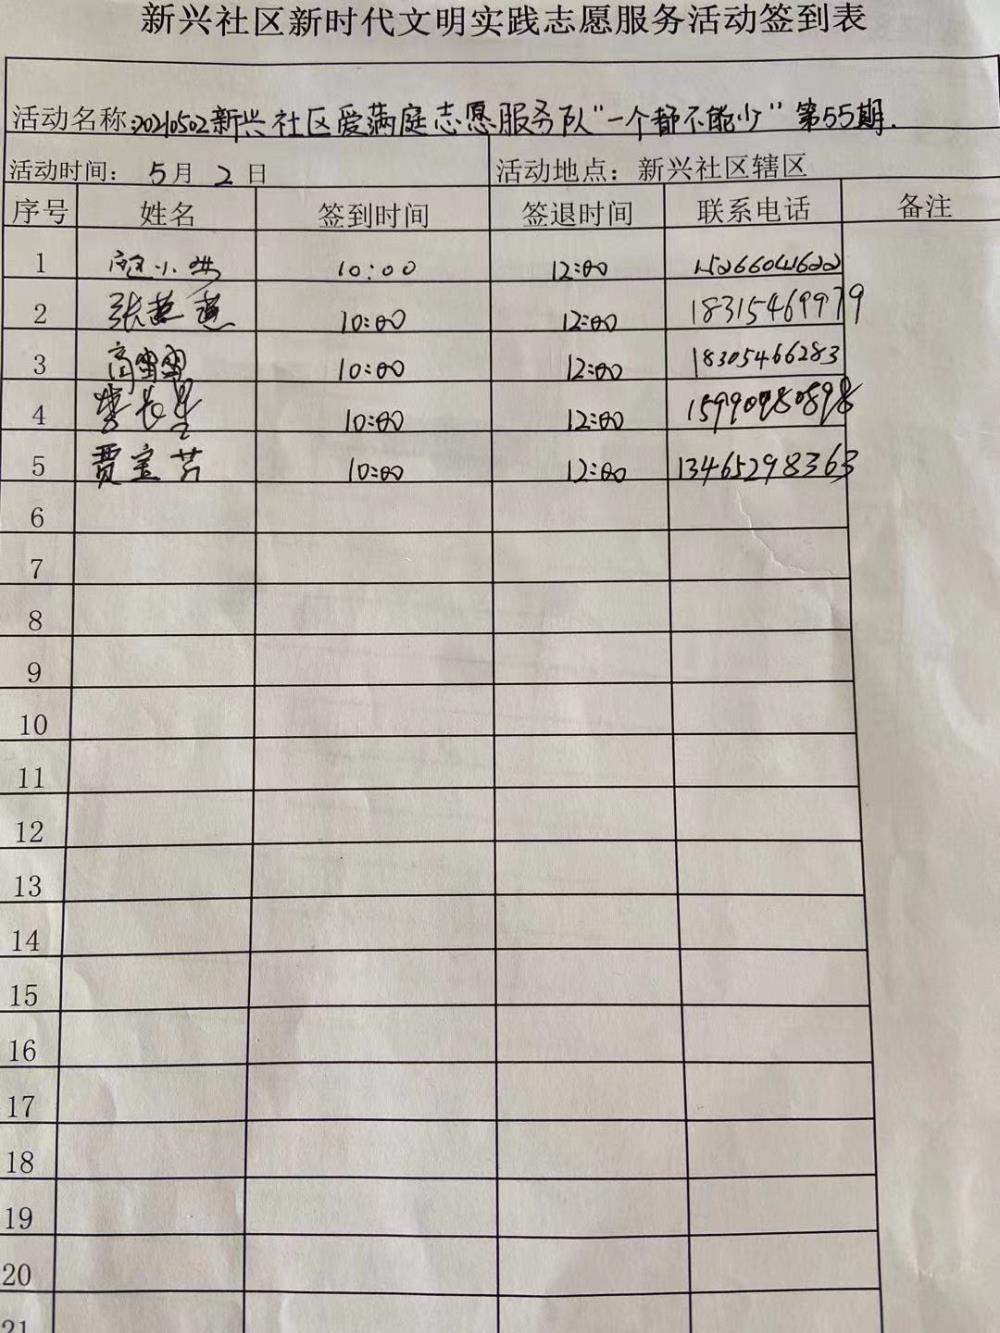 新兴社区新时代文明实践志愿服务活动签到表
活动名称:20210502新兴社区爱满庭志愿服务队"一个都不能少"第55期.
活动时间: 5月 2 日 活动地点: 新兴社区辖区
序号 姓名 签到时间 签退时间 联系电话 备注
1 小 10:00 12:00 15266041622
2 张燕燕 10:00 12:00 18315469979
3 高雷雷 10:00 12:00 18305466283
4 李长星 10:00 12:00
5 贾宝芳 10:00 12:00 13465298363
6
7
8
9
10
11
12
13
14
15
16
17
18
19
20
21